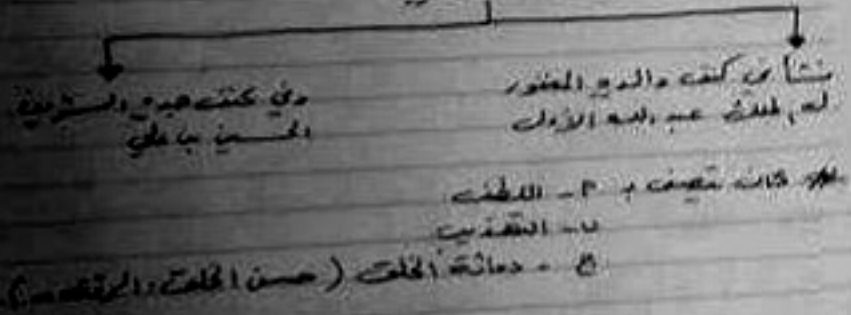 نشأ في كنف والده المغفور
له الملك عبد الله الأول
وفي كنف جده الشريف
الحسين بن علي
كان يتصف بـ أ - اللطف
ب - التهذيب
ج - دماثة الخلق (حسن الخلق و